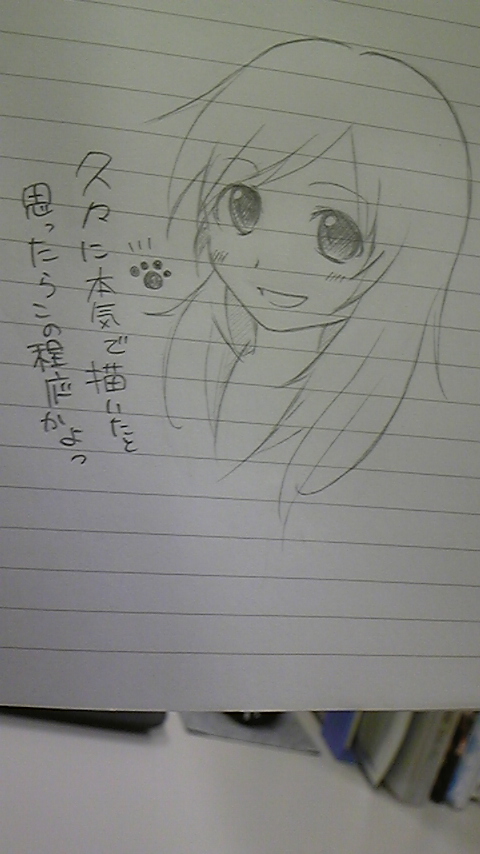 久々に本気で描いたと
思ったらこの程度かよっ